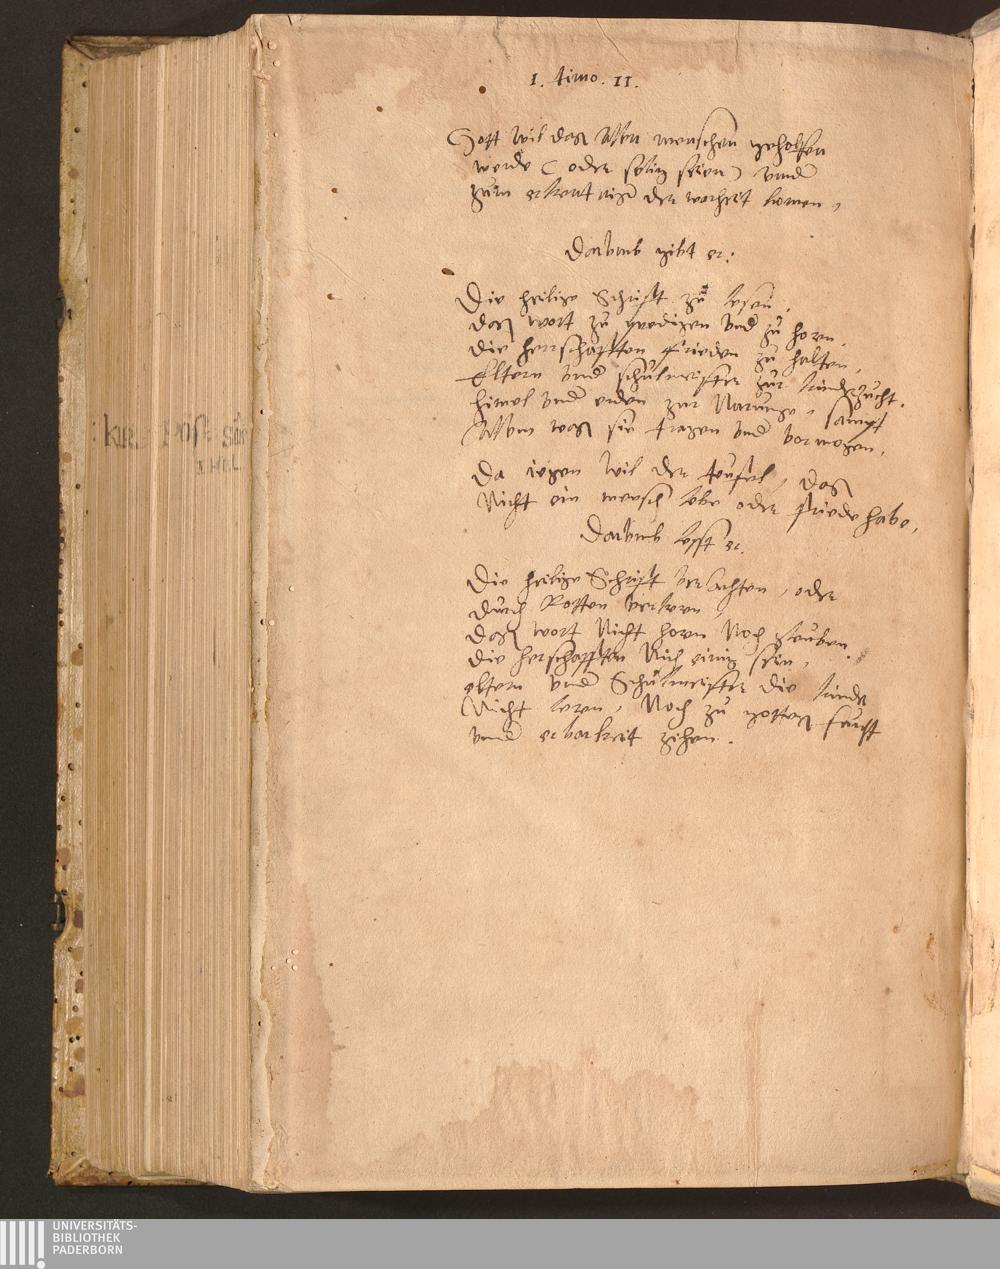 1. timo. 11.
Gott wil das Allen menschen geholfen
werde (oder selig seien) vnd
zum erkentnis der warheit komen,
Darumb gibt er:
Die heilige Schrifft zu lesen,
das wort zu predigen vnd zu horen,
die herrschafften frieden zu halten,
Eltern vnd schulmeister zur kinderzucht.
himel vnd erden zur Narunge, sampt
Allem was sie tragen vnd vormogen,
Da jegen wil der teufel, das
Nicht ein mensch lebe oder friede habe,
Darumb lesst er.
Die heilige Schrifft verachten, oder
durch Rotten verkeren,
das wort Nicht horen Noch gleuben.
die herschafften Nich einig sein,
eltern vnd Schulmeister die kinder
Nicht leren, Noch zu gottes furcht
vnd erbarkeit zihen.
UNIVERSITÄTS-
BIBLIOTHEK
PADERBORN